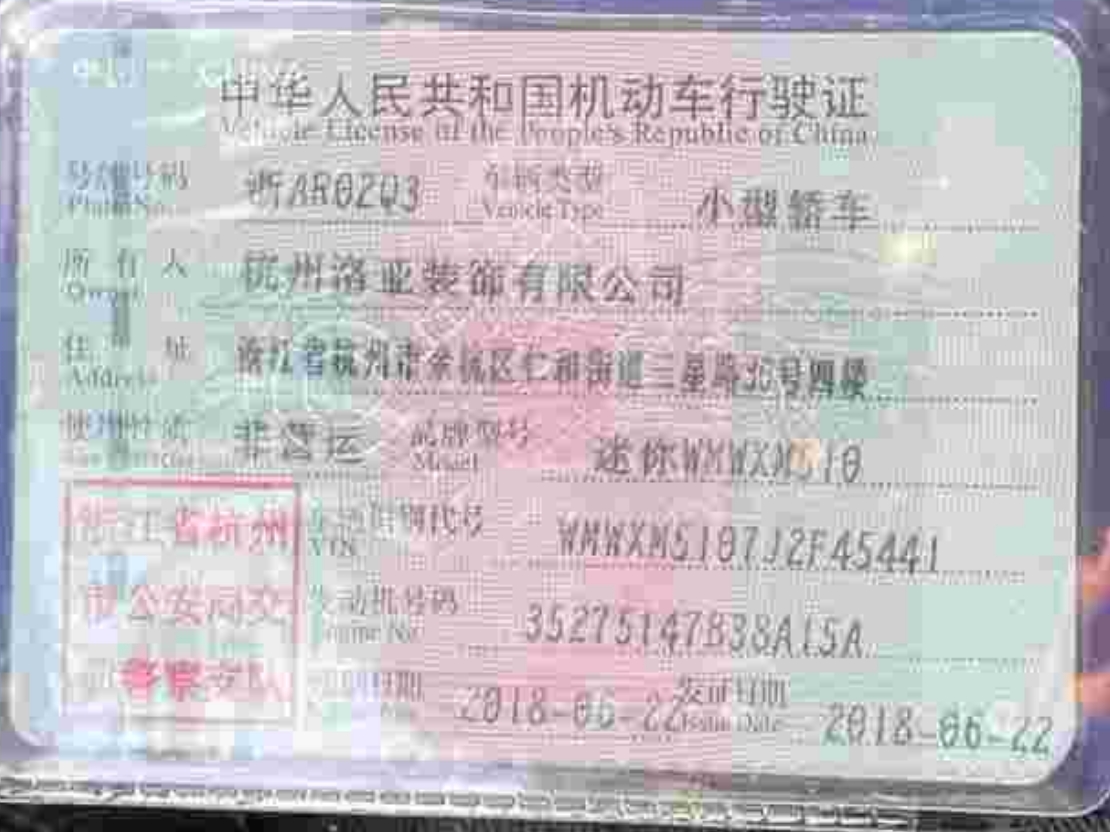 中华人民共和国机动车行驶证
Vehicle License of the People's Republic of China
号牌号码 浙AR0ZQ3 车辆类型 小型轿车
Plate No. Vehicle Type
所有人 杭州洛亚装饰有限公司
Owner
住址 浙江省杭州市余杭区仁和街道三星路36号四楼
Address
使用性质 非营运 品牌型号 迷你WMWXM510
Model
浙江省杭州 车辆识别代号 WMWXM5107J2F45441
VIN
市公安局交 发动机号码 35275147B38A15A
Engine No.
警察支队 注册日期 2018-06-22 发证日期 2018-06-22
Issue Date